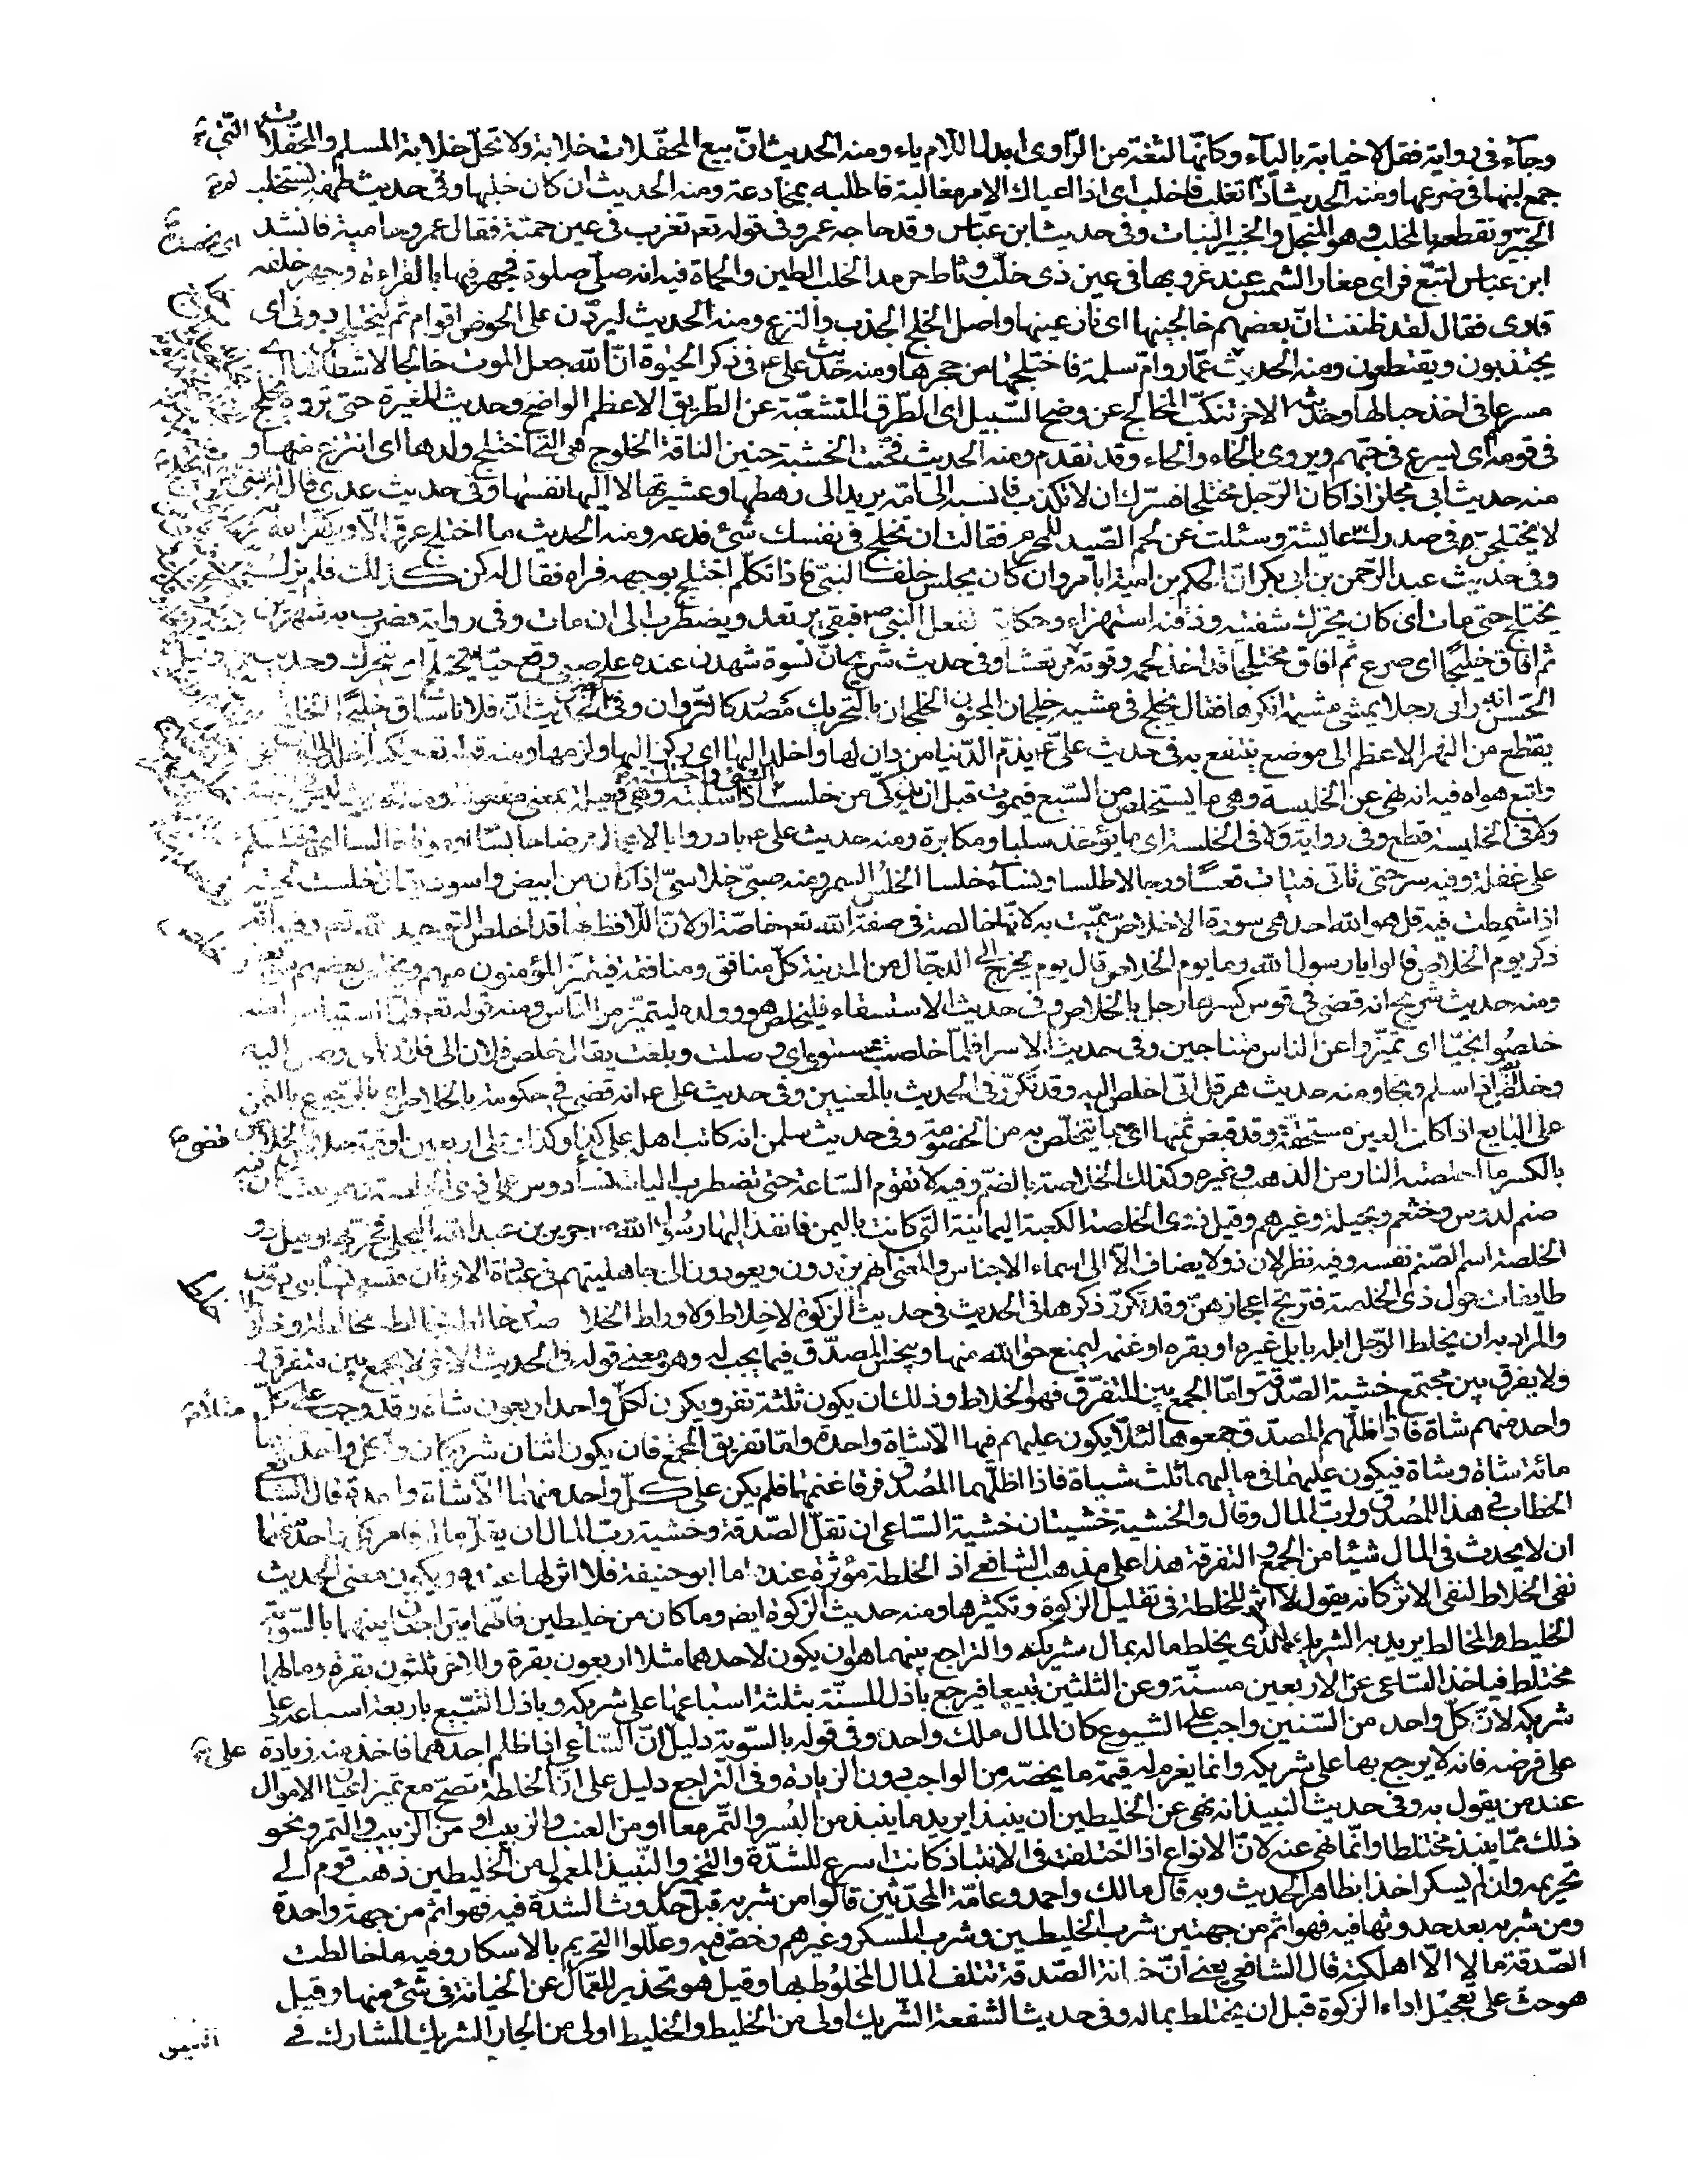 وجآء فى رواية فقل لا خيابة بالياء وكانّها لثغة من الرّاوى ابدل اللام ياء ومنه الحديث انّ بيع المحفّلات خلابة ولا تحلّ خلابة المسلم والمحفّلات التى
جمع لبنها فى ضرعها ومنه الحديث اذا لم تغلب فاخلب اى اذا اعياك الامر مغالبة فاطلبه بمخادعة ومنه الحديث ان كان خلبها وفى حديث طهفة نستخلب
الخبير ونقطعه بالمخلب وهو المنجل والخبير النبات وفى حديث ابن عبّاس وقد حاجه عمرو فى قوله تعم تغرب فى عين حمئة فقال عمرو حامية فانشد
ابن عباس لتبّع فراى مغار الشمس عند غروبها فى عين ذى خلب وثاط حرمد الخلب الطين والحماة فيه انه صلّى صلوة فجهر فيها بالقراءة وجهر خلفه
قارى فقال لقد ظننت انّ بعضهم خالجنيها اى نازعنيها واصل الخلج الجذب والنزع ومنه الحديث ليردّن على الحوض اقوام ثم ليختلجن دونى اى
يجتذبون ويقتطعون ومنه الحديث عمّار وامّ سلمة فاختلجها من حجرها ومنه حديث على ع فى ذكر الحيوة انّ الله جعل الموت خالجا لاشطانها اى
مسرعا فى اخذ حبالها وحديثه الاخر تنكب المخالج عن وضح السّبيل اى الطّرق المتشعّبة عن الطريق الاعظم الواضح وحديث المغيرة حتى تروه يخلج
فى قومه اى يسرع فى حبّهم ويروى بالخاء والحاء وقد تقدم ومنه الحديث فحنّت الخشبة حنين الناقة الخلوج هى التى اختلج ولدها اى انتزع منها و
منه حديث ابى مجلز اذا كان الرّجل مختلجا فسرّك ان لا تكذب فانسبه الى امّه يريد الى رهطها وعشيرتها لا اليها نفسها وفى حديث عدى قال
لا يختلجنّ فى صدرك عايشة وسئلت عن لحم الصّيد للمحرم فقالت ان تخلج فى نفسك شئ فدعه ومنه الحديث ما اختلج عرق الّا ويكفر الله
وفى حديث عبد الرّحمن بن ابى بكر انّ الحكم بن امية ابا مروان كان يجلس خلف النبىّ فاذا تكلّم اختلج بوجهه فراه فقال له كن كذلك فلم يزل
يختلج حتى مات اى كان يحرّك شفتيه وذقنه استهزاء وحكاية لفعل النبى ص فبقى يرتعد ويضطرب الى ان مات وفى رواية فضرب به شهرين
ثم افاق خليجا اى صرع ثم افاق مختلجا قد اخذ لحمه وقوته مرتعشا وفى حديث شريح انّ نسوة شهدن عنده على صبى وقع حيّا يختلج اى يتحرك وحديث
الحسن انه راى رجلا يمشى مشية انكرها فقال يخلج فى مشيه خلجان المجنون الخلجان بالتحريك مصدر كالنّزوان وفى الحديث انّ فلانا ساق خليجا
يقتطع من النهر الاعظم الى موضع ينتفع به فى حديث علىّ ع يذمّ الدّنيا من دان لها واخلد اليها اى ركن اليها ولزمها ومنه قوله تعم
واتبع هواه فيه انه نهى عن الخليسة وهى ما يستخلص من السّبع فيموت قبل ان يذكّى من خلست الشئ واختلسته اذا سلبته وهى فعيلة بمعنى مفعولة
ولا فى الخليسة قطع وفى رواية ولا فى الخلسة اى ما يؤخذ سلبا ومكابرة ومنه حديث على ع بادروا بالاعمال مرضا حابسا او موتا خالسا اى يختلسكم
على غفلة وفيه سر حتى تاتى فتيات قعسا ورجالا طلسا ونساء خلسا الخلس السمر ومنه صبىّ خلاسىّ اذا كان من ابيض واسود يقال خلست لحيته
اذا شمطت فيه قل هو الله احد هى سورة الاخلاص سمّيت به لانّها خالصة فى صفة الله تعم خاصّة او لانّ اللافظ بها قد اخلص التوحيد لله تعم وفيه انه
ذكر يوم الخلاص قالوا يا رسول الله وما يوم الخلاص قال يوم يخرج الى الدجّال من المدينة كلّ منافق ومنافقة فيتميّز المؤمنون منهم ويخلص بعضهم من بعض
ومنه حديث شريح انه قضى فى قوس كسرها رجل بالخلاص وفى حديث الاستسقاء فليخلص هو وولده ليتميّز من النّاس ومنه قوله تعم فلمّا استيئسوا منه
خلصوا نجيّا اى تميّزوا عن الناس متناجين وفى حديث الاسرا فلمّا خلصت بمستوى اى وصلت وبلغت يقال خلص فلان الى فلان اى وصل اليه
وخلص اذا سلم ونجا ومنه حديث هرقل انّى اخلص اليه وقد تكرّر فى الحديث بالمعنيين وفى حديث على ع انه قضى فى حكومة بالخلاص اى بالرّجوع بالثمن
على البايع اذا كانت العين مستحقّة وقد قبض ثمنها اى بما يتخلّص به من الخصومة وفى حديث سلمن انه كاتب اهله على كذا وكذا وعلى اربعين اوقية خلاص
بالكسر ما اخلصته النار من الذهب وغيره وكذلك الخلاصة بالضّم وفيه لا تقوم السّاعة حتى تضطرب اليات نساء دوس على ذى الخلصة
صنم لدوس وخثعم وبجيلة وغيرهم وقيل ذى الخلصة الكعبة اليمانية التى كانت باليمن فانفذ اليها رسول الله ص جرير بن عبد الله البجلى فخرّبها وقيل ذو
الخلصة اسم الصّنم نفسه وفيه نظر لان ذو لا يضاف الّا الى اسماء الاجناس والمعنى انهم يرتدون ويعودون الى جاهليتهم فى عبادة الاوثان فتسعى نساء بنى دوس
طايفات حول ذى الخلصة فترتج اعجازهنّ وقد تكرّر ذكرها فى الحديث فى حديث الزكوة لا خلاط ولا وراط الخلاط مصدر خالطه يخالطه مخالطة وخلاطا
والمراد به ان يخلط الرّجل ابله بابل غيره او بقره او غنمه ليمنع حق الله منها ويبخس المصدّق فيما يجب له وهو معنى قوله فى الحديث الاخر لا يجمع بين متفرق
ولا يفرق بين مجتمع خشية الصّدقة وامّا الجمع بين المتفرّق فهو الخلاط وذلك ان يكون ثلثة نفر ويكون لكلّ واحد اربعون شاة وقد وجب على كلّ
واحد منهم شاة فاذا اظلّهم المصدّق جمعوها لئلّا يكون عليهم فيها الّا شاة واحدة وامّا تفريق المجتمع فان يكون اثنان شريكان ولكل واحد منهما
مائة شاة وشاة فيكون عليهما فى ماليهما ثلث شياة فاذا اظلّهما المصدّق فرقا غنمهما فلم يكن على كلّ واحد منهما الّا شاة واحدة قال الشا
الخطاب فى هذا للمصدّق ولربّ المال وقال والخشية خشيتان خشية السّاعى ان تقلّ الصّدقة وخشية ربّ المال ان يقلّ ماله فامر كلّ واحد منهما
ان لا يحدث فى المال شيئا من الجمع والتفرقة هذا على مذهب الشافعى اذ الخلطة مؤثرة عنده اما ابو حنيفة فلا اثر لها عنده ويكون معنى الحديث
نفى الخلاط لنفى الاثر كانه يقول لا اثر للخلطة فى تقليل الزكوة وتكثيرها ومنه حديث الزكوة ايضا وما كان من خليطين فانّهما يتراجعان بينهما بالسّويّة
الخليط والمخالط يريد به الشريك الذى يخلط ماله بمال شريكه والتراجع بينهما هو ان يكون لاحدهما مثلا اربعون بقرة وللاخر ثلثون بقرة ومالهما
مختلط فياخذ السّاعى عن الاربعين مسنّة وعن الثلثين تبيعا فيرجع باذل المسنّة بثلثة اسباعها على شريكه وباذل التّبيع باربعة اسباعه على
شريكه لانّ كلّ واحد من السّنين واجب على الشيوع كان المال ملك واحد وفى قوله بالسّوية دليل انّ السّاعى اذا ظلم احدهما فاخذ منه زيادة على
على فرضه فانه لا يرجع بها على شريكه وانما يغرم له قيمة ما يخصّه من الواجب دون الزيادة وفى التراجع دليل على انّ الخلطة تصحّ مع تميز اعيان الاموال
عند من يقول به وفى حديث النبيذ انه نهى عن الخليطين ان ينبذا يريد ما ينبذ من البسر والتّمر معا او من العنب والزبيب او من الزبيب والتمر ونحو
ذلك ممّا ينبذ مختلطا وانّما نهى عنه لانّ الانواع اذا اختلفت فى الانتباذ كانت اسرع للشدّة والتخمر والنّبيذ المعمول من الخليطين ذهب قوم الى
تحريمه وان لم يسكر اخذا بظاهر الحديث وبه قال مالك واحمد وعامّة المحدّثين قالوا من شربه قبل حدوث الشدة فيه فهو اثم من جهة واحدة
ومن شربه بعد حدوثها فيه فهو اثم من جهتين شرب الخليطين وشرب المسكر وغيرهم رخص فيه وعلّلوا التحريم بالاسكار وفيه ما خالطت
الصّدقة مالا الّا اهلكته قال الشافعى يعنى انّ خيانة الصّدقة تتلف المال المخلوط بها وقيل هو تحذير للعمّال عن الخيانة فى شئ منها وقيل
هو حث على تعجيل اداء الزكوة قبل ان يختلط بماله وفى حديث الشفعة الشّريك اولى من الخليط والخليط اولى من الجار الشريك المشارك فى